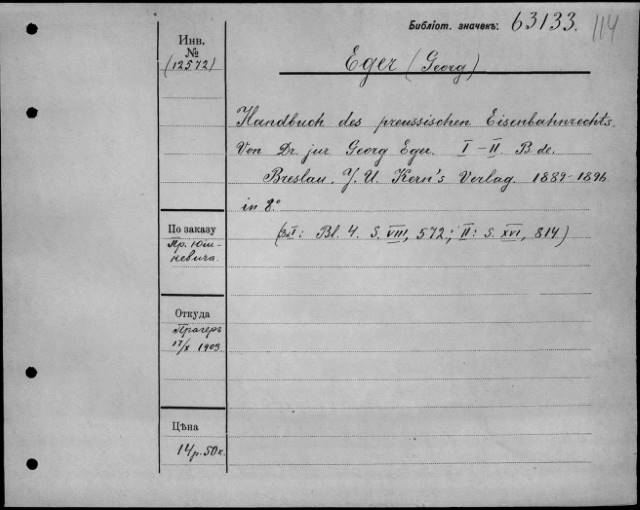 Библіот. значекъ: 63133. 114
Инв.
№
(12572)
Eger (Georg)
Handbuch des preussischen Eisenbahnrechts.
Von Dr. jur Georg Eger. I–II Bde.
Breslau. J. U. Kern's Verlag. 1889-1896
in 8°
(Bd I: Bl. 4. S. VIII, 572; II: S. XVI, 814)
По заказу
Пр. Юш-
невича.
Откуда
Прагеръ
17/X 1909.
Цѣна
14 р. 50 к.